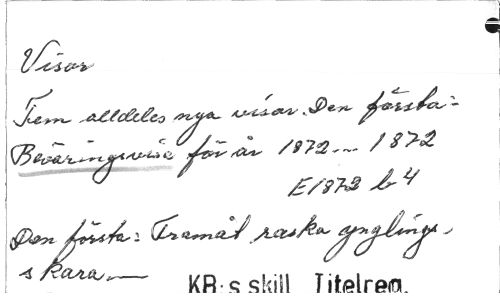 Visor
Fem alldeles nya visor. Den första:
Beväringsvisa för år 1872 ... 1872
E1872 b 4
Den första: Framåt raska ynglings-
skara.—
KB:s skill. Titelreg.